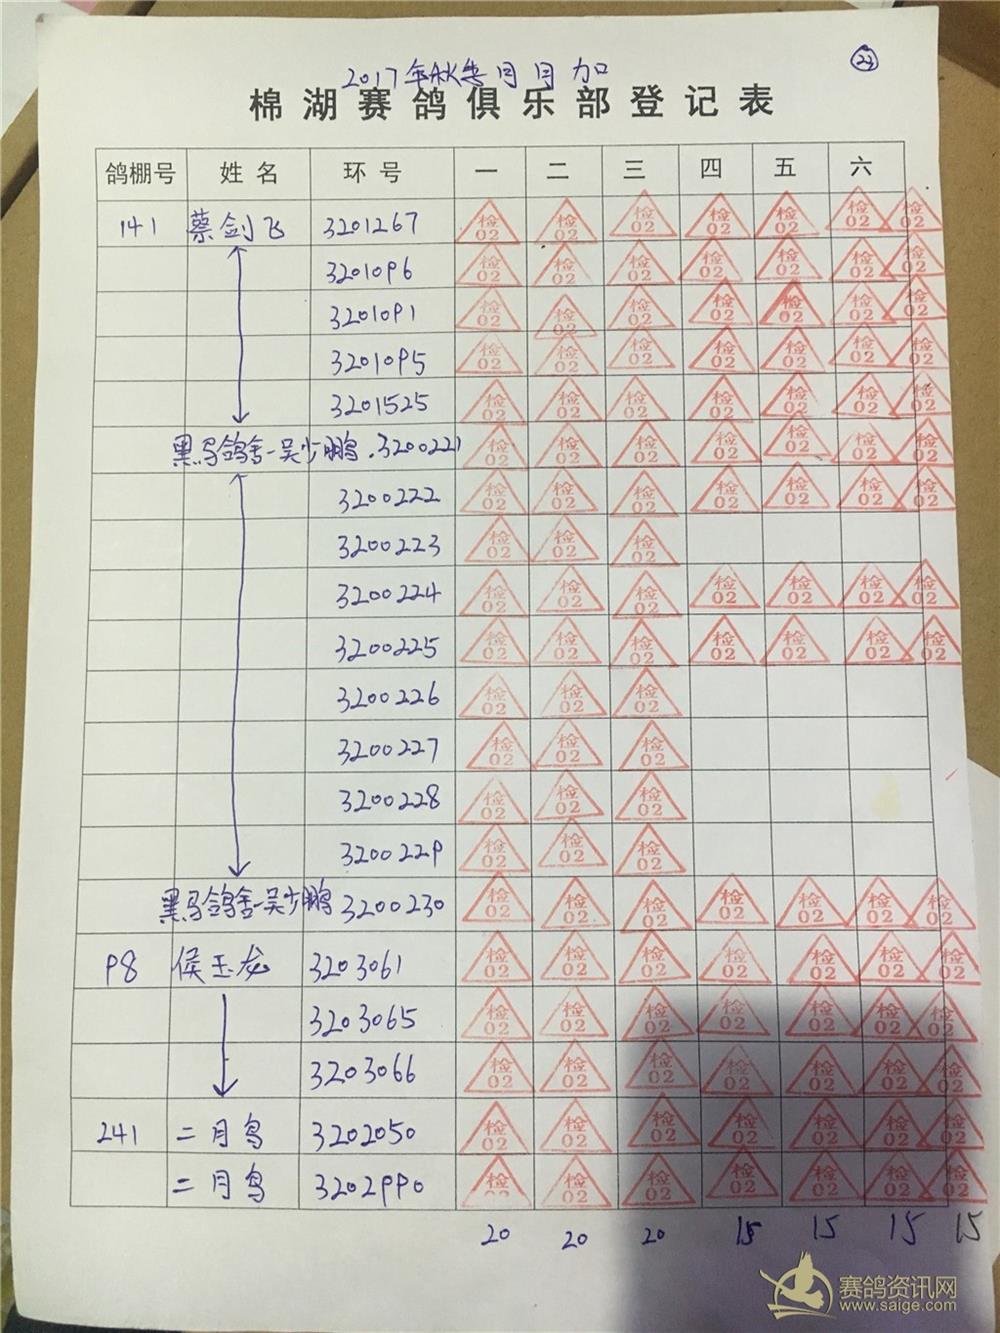 2017年 月月加
23
棉湖赛鸽俱乐部登记表
鸽棚号 姓名 环号 一 二 三 四 五 六
141 蔡剑飞 3201267 检02 检02 检02 检02 检02 检02 检02
3201096 检02 检02 检02 检02 检02 检02 检02
3201091 检02 检02 检02 检02 检02 检02 检02
3201095 检02 检02 检02 检02 检02 检02 检02
3201525 检02 检02 检02 检02 检02 检02 检02
黑马鸽舍-吴少鹏.3200221 检02 检02 检02 检02 检02 检02 检02
3200222 检02 检02 检02 检02 检02 检02 检02
3200223 检02 检02 检02
3200224 检02 检02 检02 检02 检02 检02 检02
3200225 检02 检02 检02 检02 检02 检02 检02
3200226 检02 检02 检02
3200227 检02 检02 检02
3200228 检02 检02 检02
3200229 检02 检02 检02
黑马鸽舍-吴少鹏 3200230 检02 检02 检02 检02 检02 检02 检02
98 侯玉龙 3203061 检02 检02 检02 检02 检02 检02 检02
3203065 检02 检02 检02 检02 检02 检02 检02
3203066 检02 检02 检02 检02 检02 检02 检02
241 二月鸟 3202050 检02 检02 检02 检02 检02 检02 检02
二月鸟 3202990 检02 检02 检02 检02 检02 检02 检02
20 20 20 15 15 15 15
赛鸽资讯网
www.saige.com